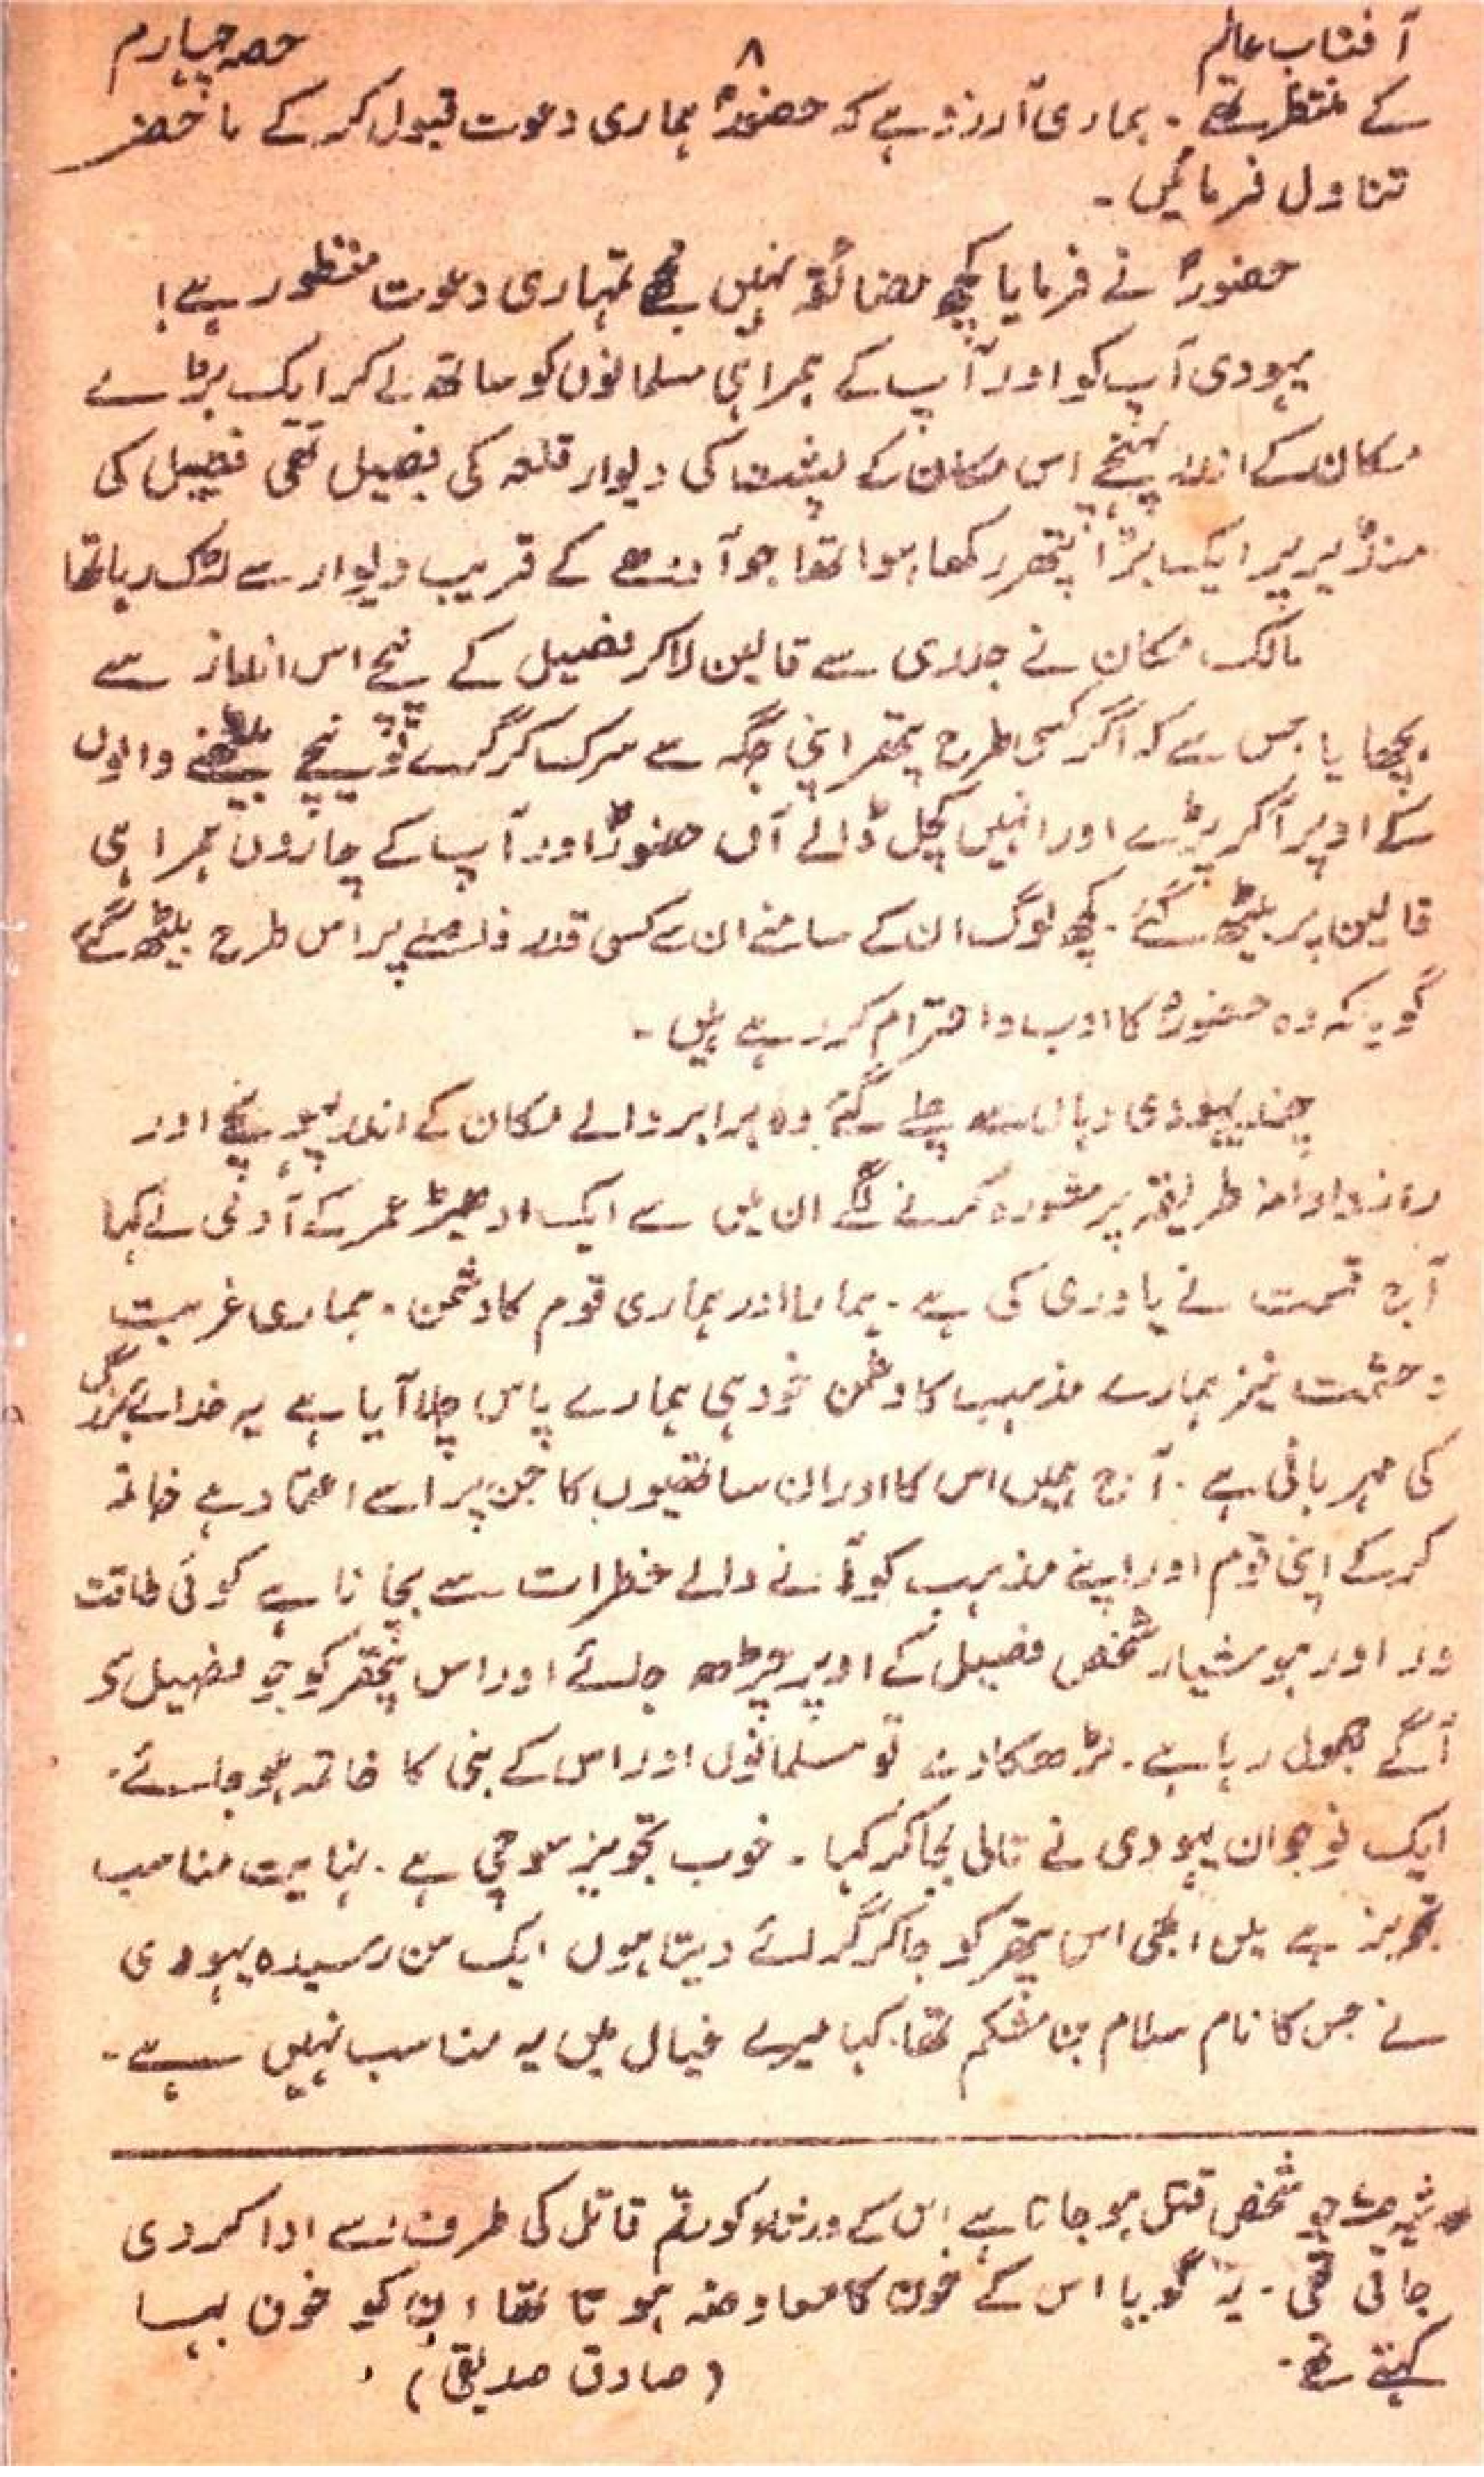 آفتاب عالم ۸ حصہ چہارم
کے منتظر تھے ۔ ہماری آرزو ہے کہ حضورؐ ہماری دعوت قبول کر کے ماحضر
تناول فرمائیں ۔
حضورؐ نے فرمایا کچھ مضائقہ نہیں مجھے تمہاری دعوت منظور ہے !
یہودی آپ کو اور آپ کے ہمراہی مسلمانوں کو ساتھ لے کر ایک بڑے
مکان کے اندر پہنچے اس مکان کے پشت کی دیوار قلعہ کی فصیل تھی فصیل کی
منڈیر پر ایک بڑا پتھر رکھا ہوا تھا جو آدھے کے قریب دیوار سے لٹک رہا تھا
مالک مکان نے جلدی سے قالین لا کر فصیل کے نیچے اس انداز سے
بچھایا جس سے کہ اگر کسی طرح پتھر اپنی جگہ سے سرک کر گرے تو نیچے بیٹھنے والوں
کے اوپر آ کر پڑے اور انہیں کچل ڈالے آں حضورؐ اور آپ کے چاروں ہمراہی
قالین پر بیٹھ گئے ۔ کچھ لوگ ان کے سامنے ان سے کسی قدر فاصلے پر اس طرح بیٹھ گئے
گویہ کہ وہ حضورؐ کا ادب و احترام کر رہے ہیں ۔
چند یہودی وہاں سے چلے گئے وہ برابر والے مکان کے اندر پہونچے اور
رازدادانہ طریقہ پر مشورہ کرنے لگے ان میں سے ایک ادھیڑ عمر کے آدمی نے کہا
آج قسمت نے یاوری کی ہے ۔ ہمارا اور ہماری قوم کا دشمن ۔ ہماری غربت
و حشمت نیز ہمارے مذہب کا دشمن خود ہی ہمارے پاس چلا آیا ہے یہ خدائے بزرگ
کی مہربانی ہے ۔ آج ہمیں اس کا اور ان ساتھیوں کا جن پر اسے اعتماد ہے خاتمہ
کر کے اپنی قوم اور اپنے مذہب کو آنے والے خطرات سے بچانا ہے کوئی طاقت
ور اور ہوشیار شخص فصیل کے اوپر چڑھ جائے اور اس پتھر کو جو فصیل کے
آگے جھول رہا ہے ۔ لڑھکا دے تو مسلمانوں اور اس کے نبی کا خاتمہ ہو جائے ۔
ایک نوجوان یہودی نے تالی بجا کر کہا ۔ خوب تجویز سوچی ہے ۔ نہایت مناسب
تجویز ہے میں ابھی اس پتھر کو جا کر گرائے دیتا ہوں ایک سن رسیدہ یہودی
نے جس کا نام سلام بن مشکم تھا ۔ کہا میرے خیال میں یہ مناسب نہیں ہے ۔
جو شخص قتل ہو جاتا ہے اس کے ورثاء کو رقم قاتل کی طرف سے ادا کر دی
جاتی تھی ۔ یہ گویا اس کے خون کا معاوضہ ہوتا تھا اس کو خون بہا
کہتے تھے ۔ (صادق صدیقی)